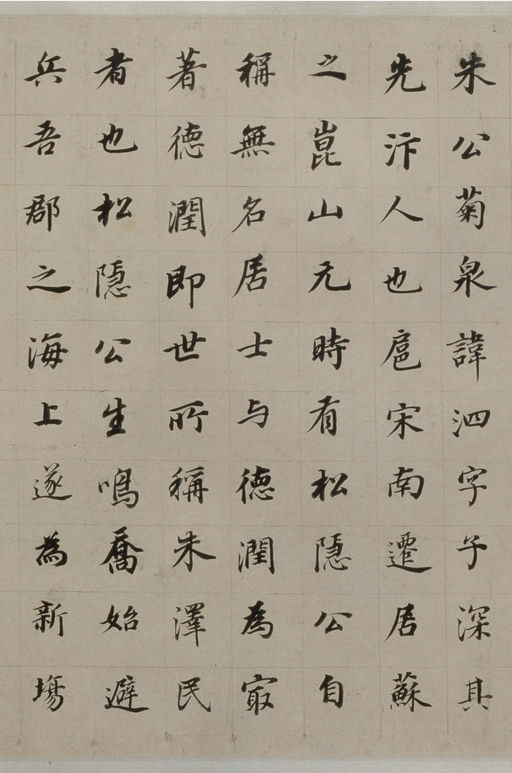 朱公菊泉諱泗字子深其
先汴人也扈宋南遷居蘇
之崑山元時有松隱公自
稱無名居士与德潤為㝡
著德潤即世所稱朱澤民
者也松隱公生鳴喬始避
兵吾郡之海上遂為新場